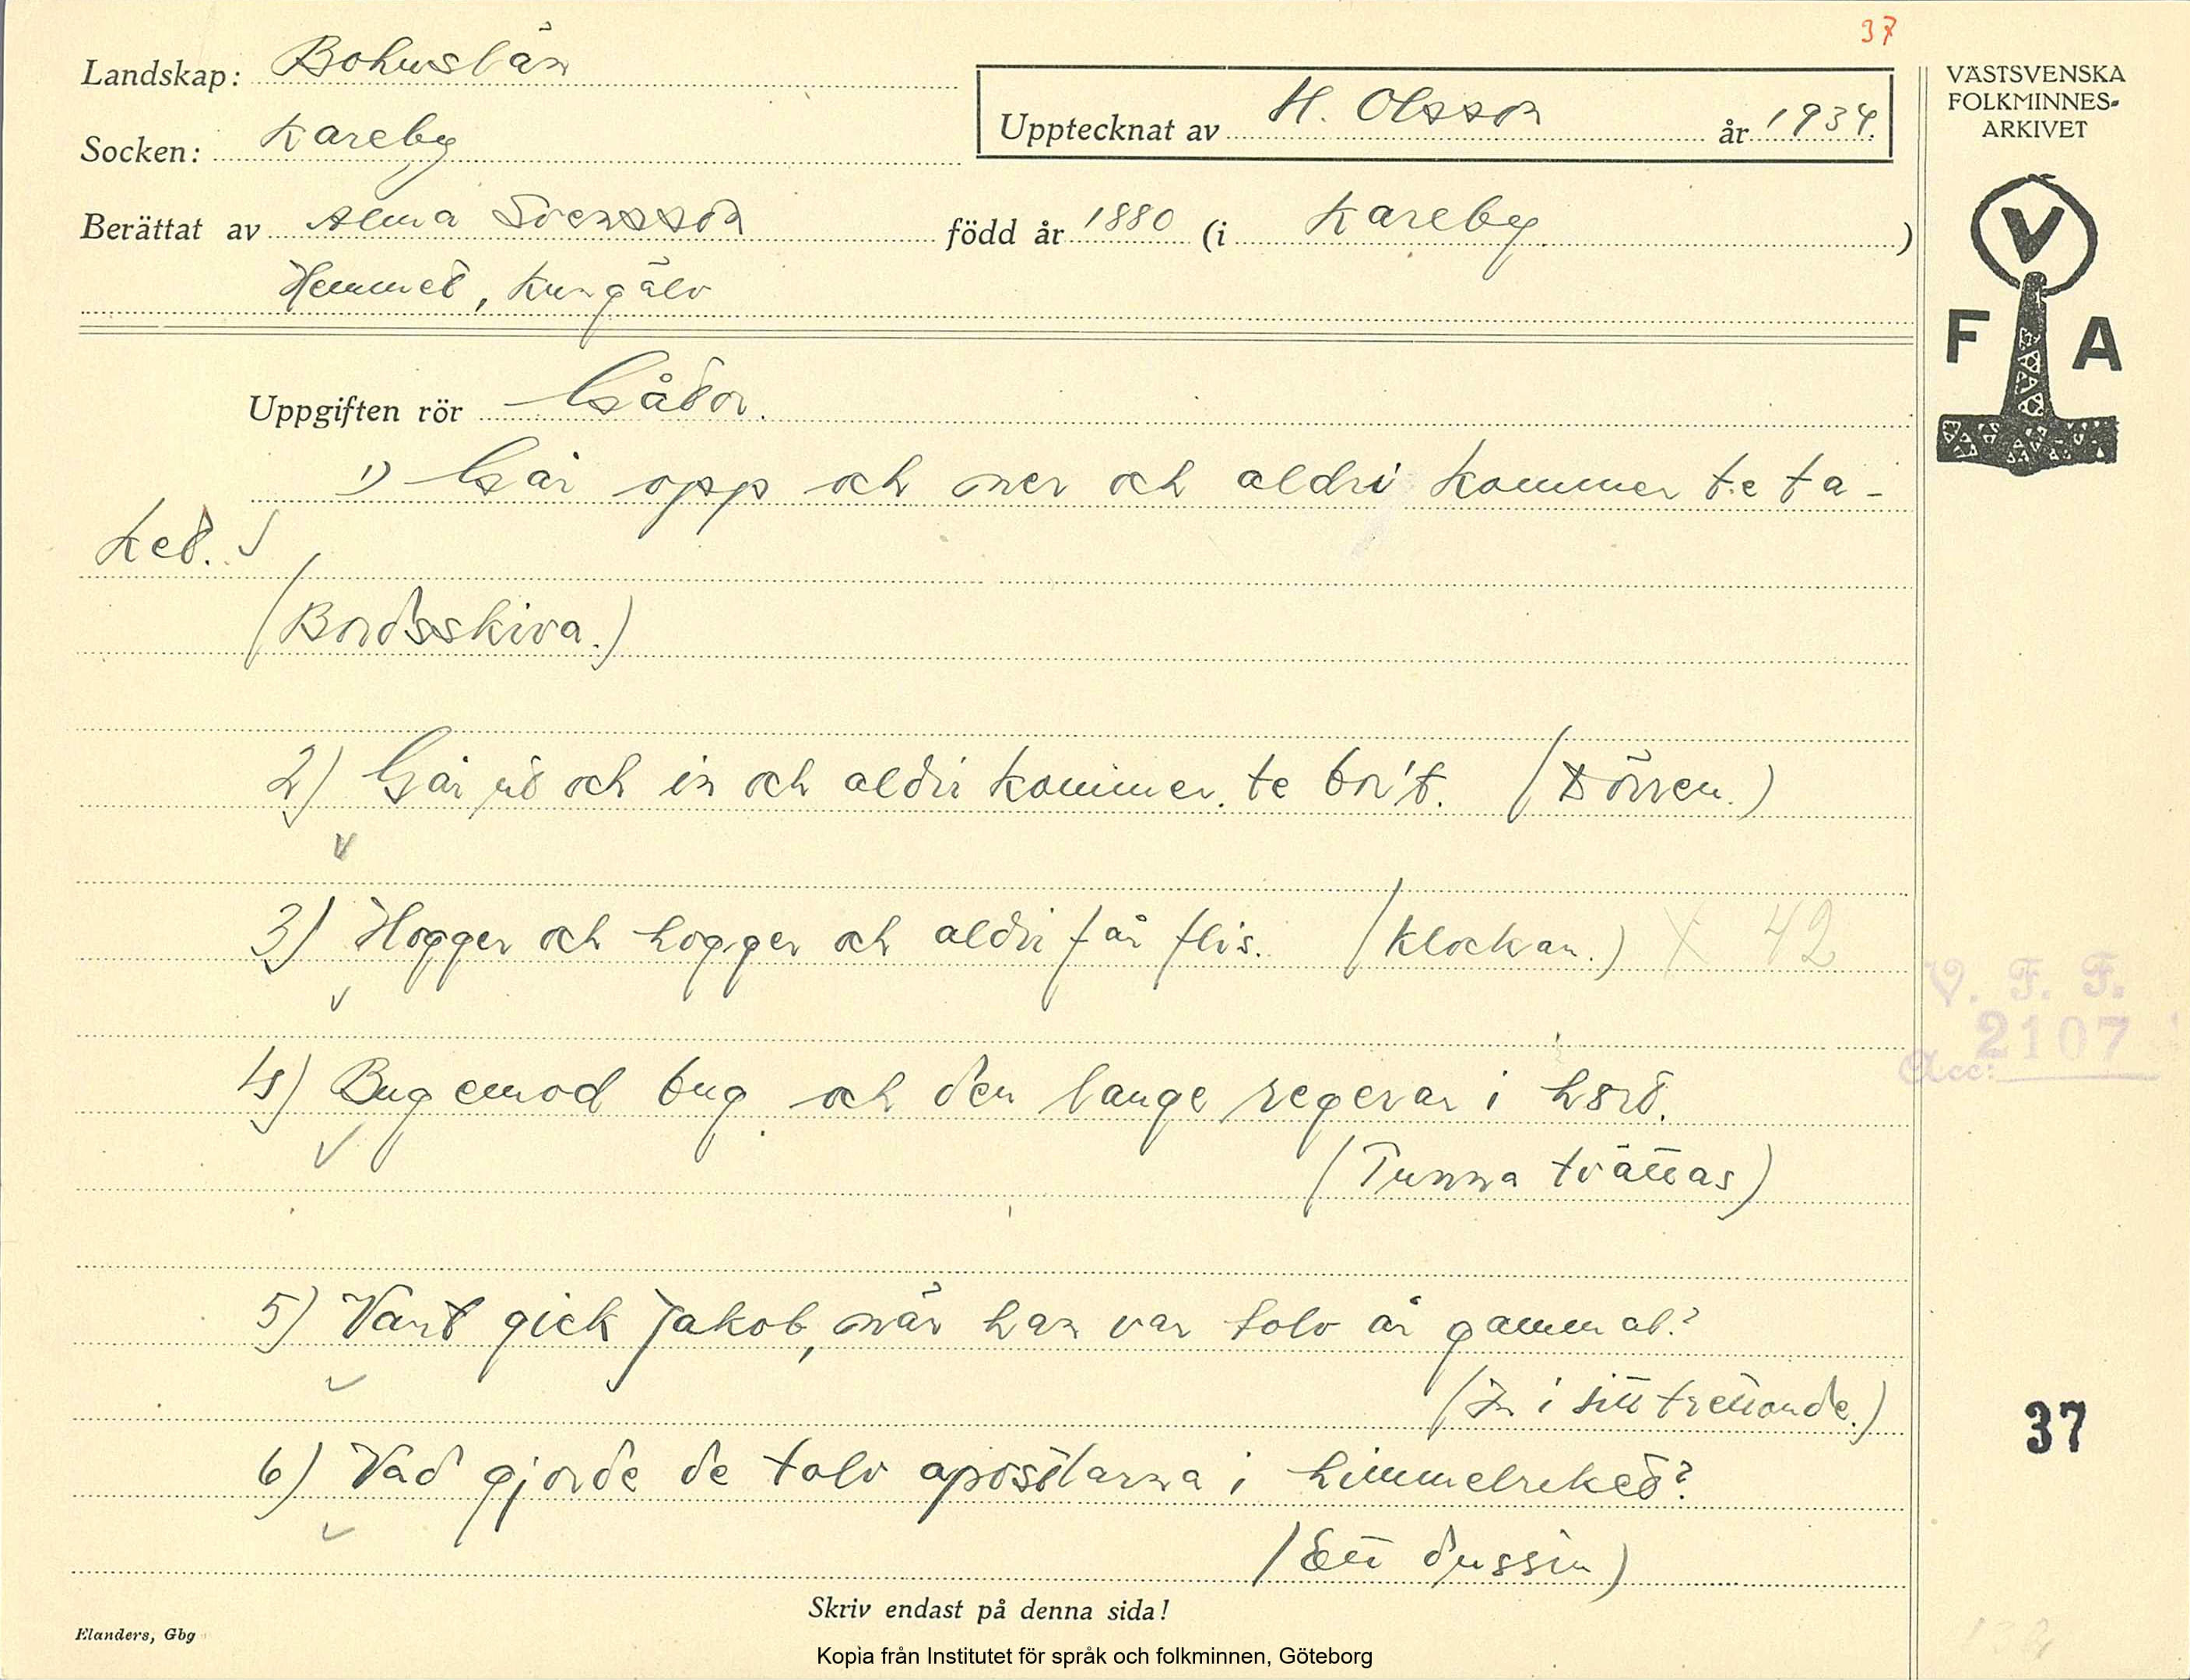 37
Landskap: Bohuslän
Socken: Kareby
Upptecknat av H. Olsson år 1934.
VÄSTSVENSKA
FOLKMINNES-
ARKIVET
Berättat av Alma Svensson född år 1880 (i Kareby.)
Hemmet, Kungälv
V
F A
Uppgiften rör Gåtor.
1) Går opp och ner och aldri kommer te ta-
ket.
(Bordsskiva.)
2) Går ut och in och aldri kommer te bort. (Dörren.)
3) Hogger och hogger och aldri får flis. (Klockan.) X 42
V. F. F.
2107
Acc:
4) Bug emod bug och den lange regerar i hört.
(Tunna tvättas)
5) Vart gick Jakob, när han var tolv år gammal?
(In i sitt trettonde.)
37
6) Vad gjorde de tolv apostlarna i himmelriket?
(Ett dussin)
Skriv endast på denna sida!
Elanders, Gbg
Kopia från Institutet för språk och folkminnen, Göteborg